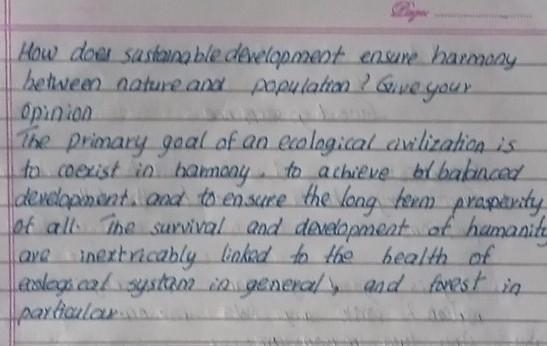 Page
How does sustainable development ensure harmony
between nature and population? Give your
opinion
The primary goal of an ecological civilization is
to coexist in hamony, to achieve balanced
development, and to ensure the long term prosperity
of all. The survival and development of humanity
are inextricably linked to the health of
ecological system in general, and forest in
particular.